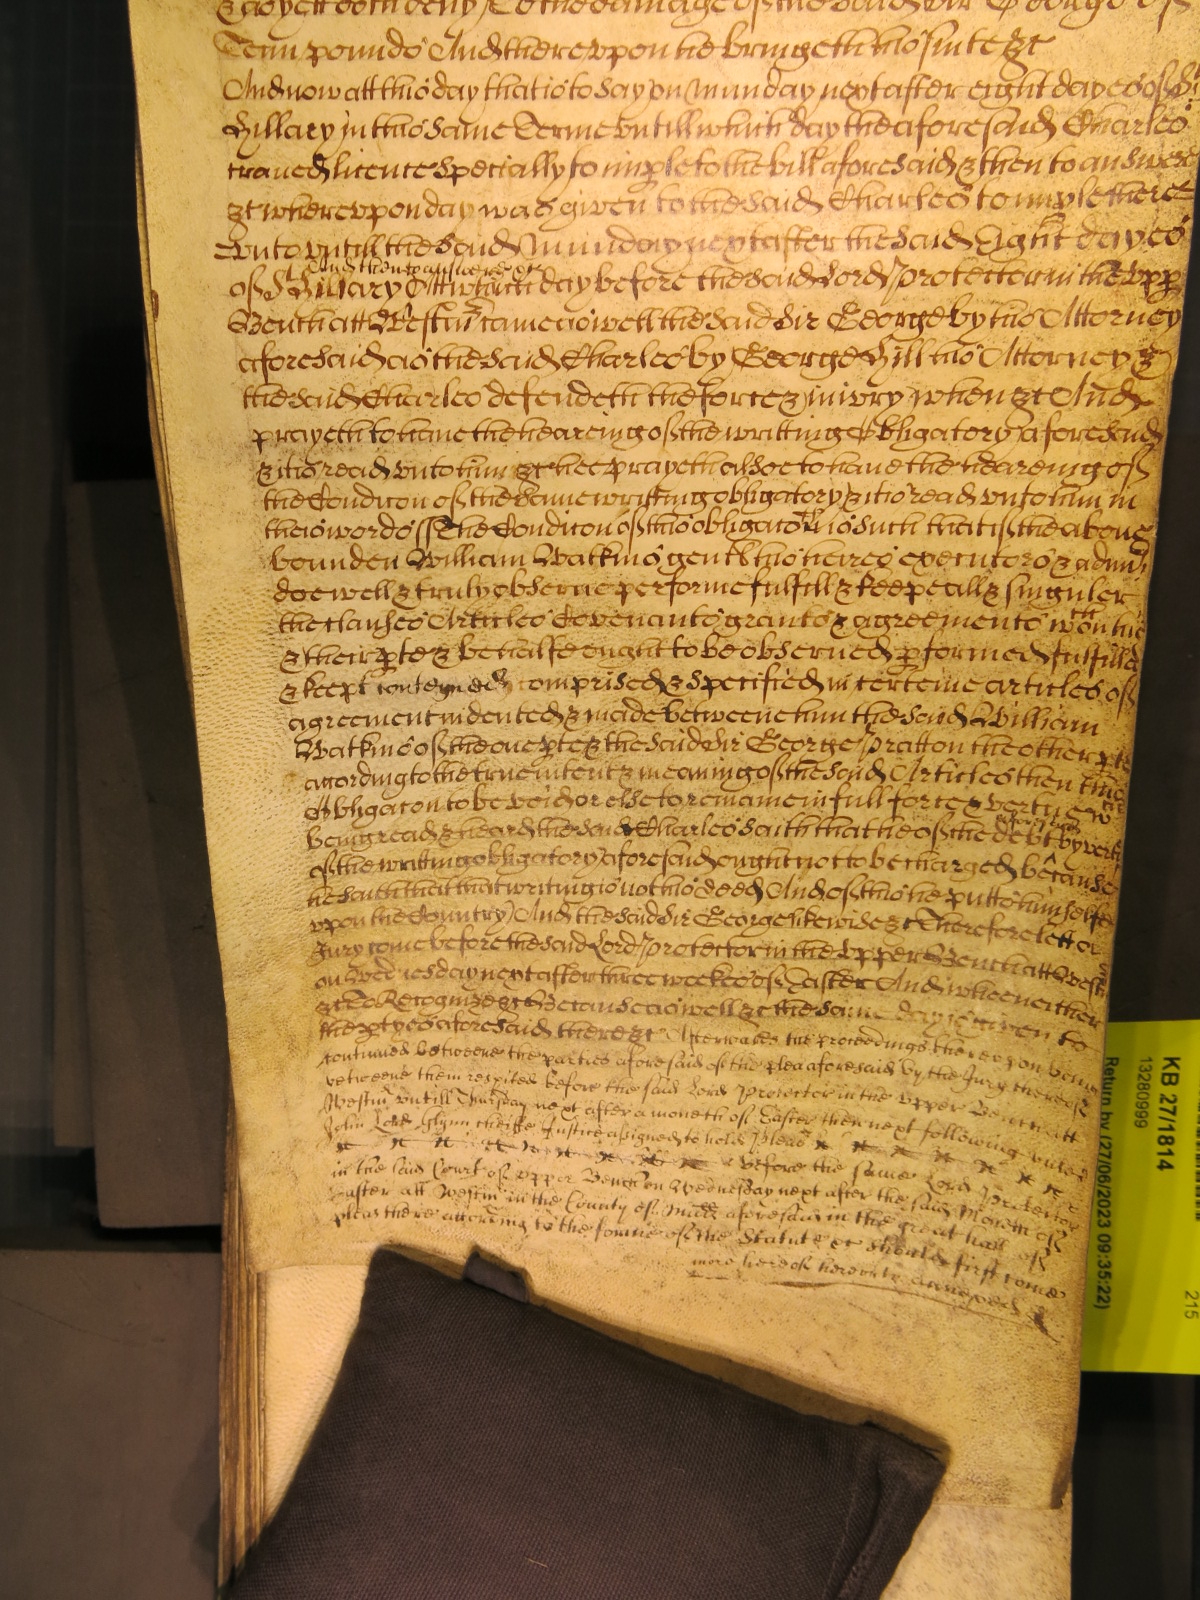 & as yett doth deny / To the damage of the said Sir George of
Tenn pounds And thereupon he bringeth his suite &c
And now att this day that is to say on Munday next after eight dayes of St
Hillary in this same Terme untill which day the aforesaid Charles
craved licence specially to imple to the bill aforesaid & then to answere
&c whereupon day was given to the said Charles to imple there
unto untill the said Munday next after the said Eight dayes
of St Hillary
And then to answere &c
Att which day before the said Lord Protector in the upp
Bench att Westm came aswell the said Sir George by his Attorney
aforesaid as the said Charles by George Hill his Attorney &
the said Charles defendeth the force & iniury when &c And
prayeth to have the heareing of the writting Obligatory aforesaid
& it is read unto him &c hee prayeth alsoe to have the heareing of
the Condicon of the same writting obligatory & it is read unto him in
theis words ss The Condicon of this obligatory is such that if the above
bounden William Watkins gent his heires executors & admi
doe well & truly observe performe fulfill & keepe all & singuler
the clauses Articles Covenants grants & agreements wch on his
& their pte & behalfe ought to be observed pformed fulfilled
& kept conteyned comprised & specified in certeine articles of
agreement indented & made betweene him the said William
Watkins of the one pte & the said Sir George Pratt on the other pte
according to the true intent & meaning of the said Articles then this
Obligacon to be void or else to remaine in full force & vertue wch
being read & heard the said Charles saith that he of the debt aforesaid by vertue
of the writting obligatory aforesaid ought not to be charged because
he saith that that writing is not his deed And of this he putts himselfe
upon the Country And the said Sir George likewise &c Therefore lett a
Jury come before the said Lord Protector in the upper Bench att Westm
on Wednesday next after three weekes of Easter And who neither
&c To Recognize &c Because aswell &c the same day is given to
the ptyes aforesaid there &c Afterwards the proceedings thereupon being
continued betweene the parties aforesaid of the plea aforesaid by the Jury thereof
betweene them respited before the said Lord Protector in the upper Bench att
Westm untill Thursday next after a moneth of Easter then next following unles
John Lord Glynn cheife Justice assigned to hold Pleas
before the same Lord Protector
in the said Court of upper Bench on Wednesday next after the said Moneth of
Easter att Westm in the County of Midd aforesaid in the great hall of
pleas there according to the forme of the Statute &c should first come
more hereof hereunto annexed
KB 27/1814
13280999
Return by (27/06/2023 09:35:22)
215